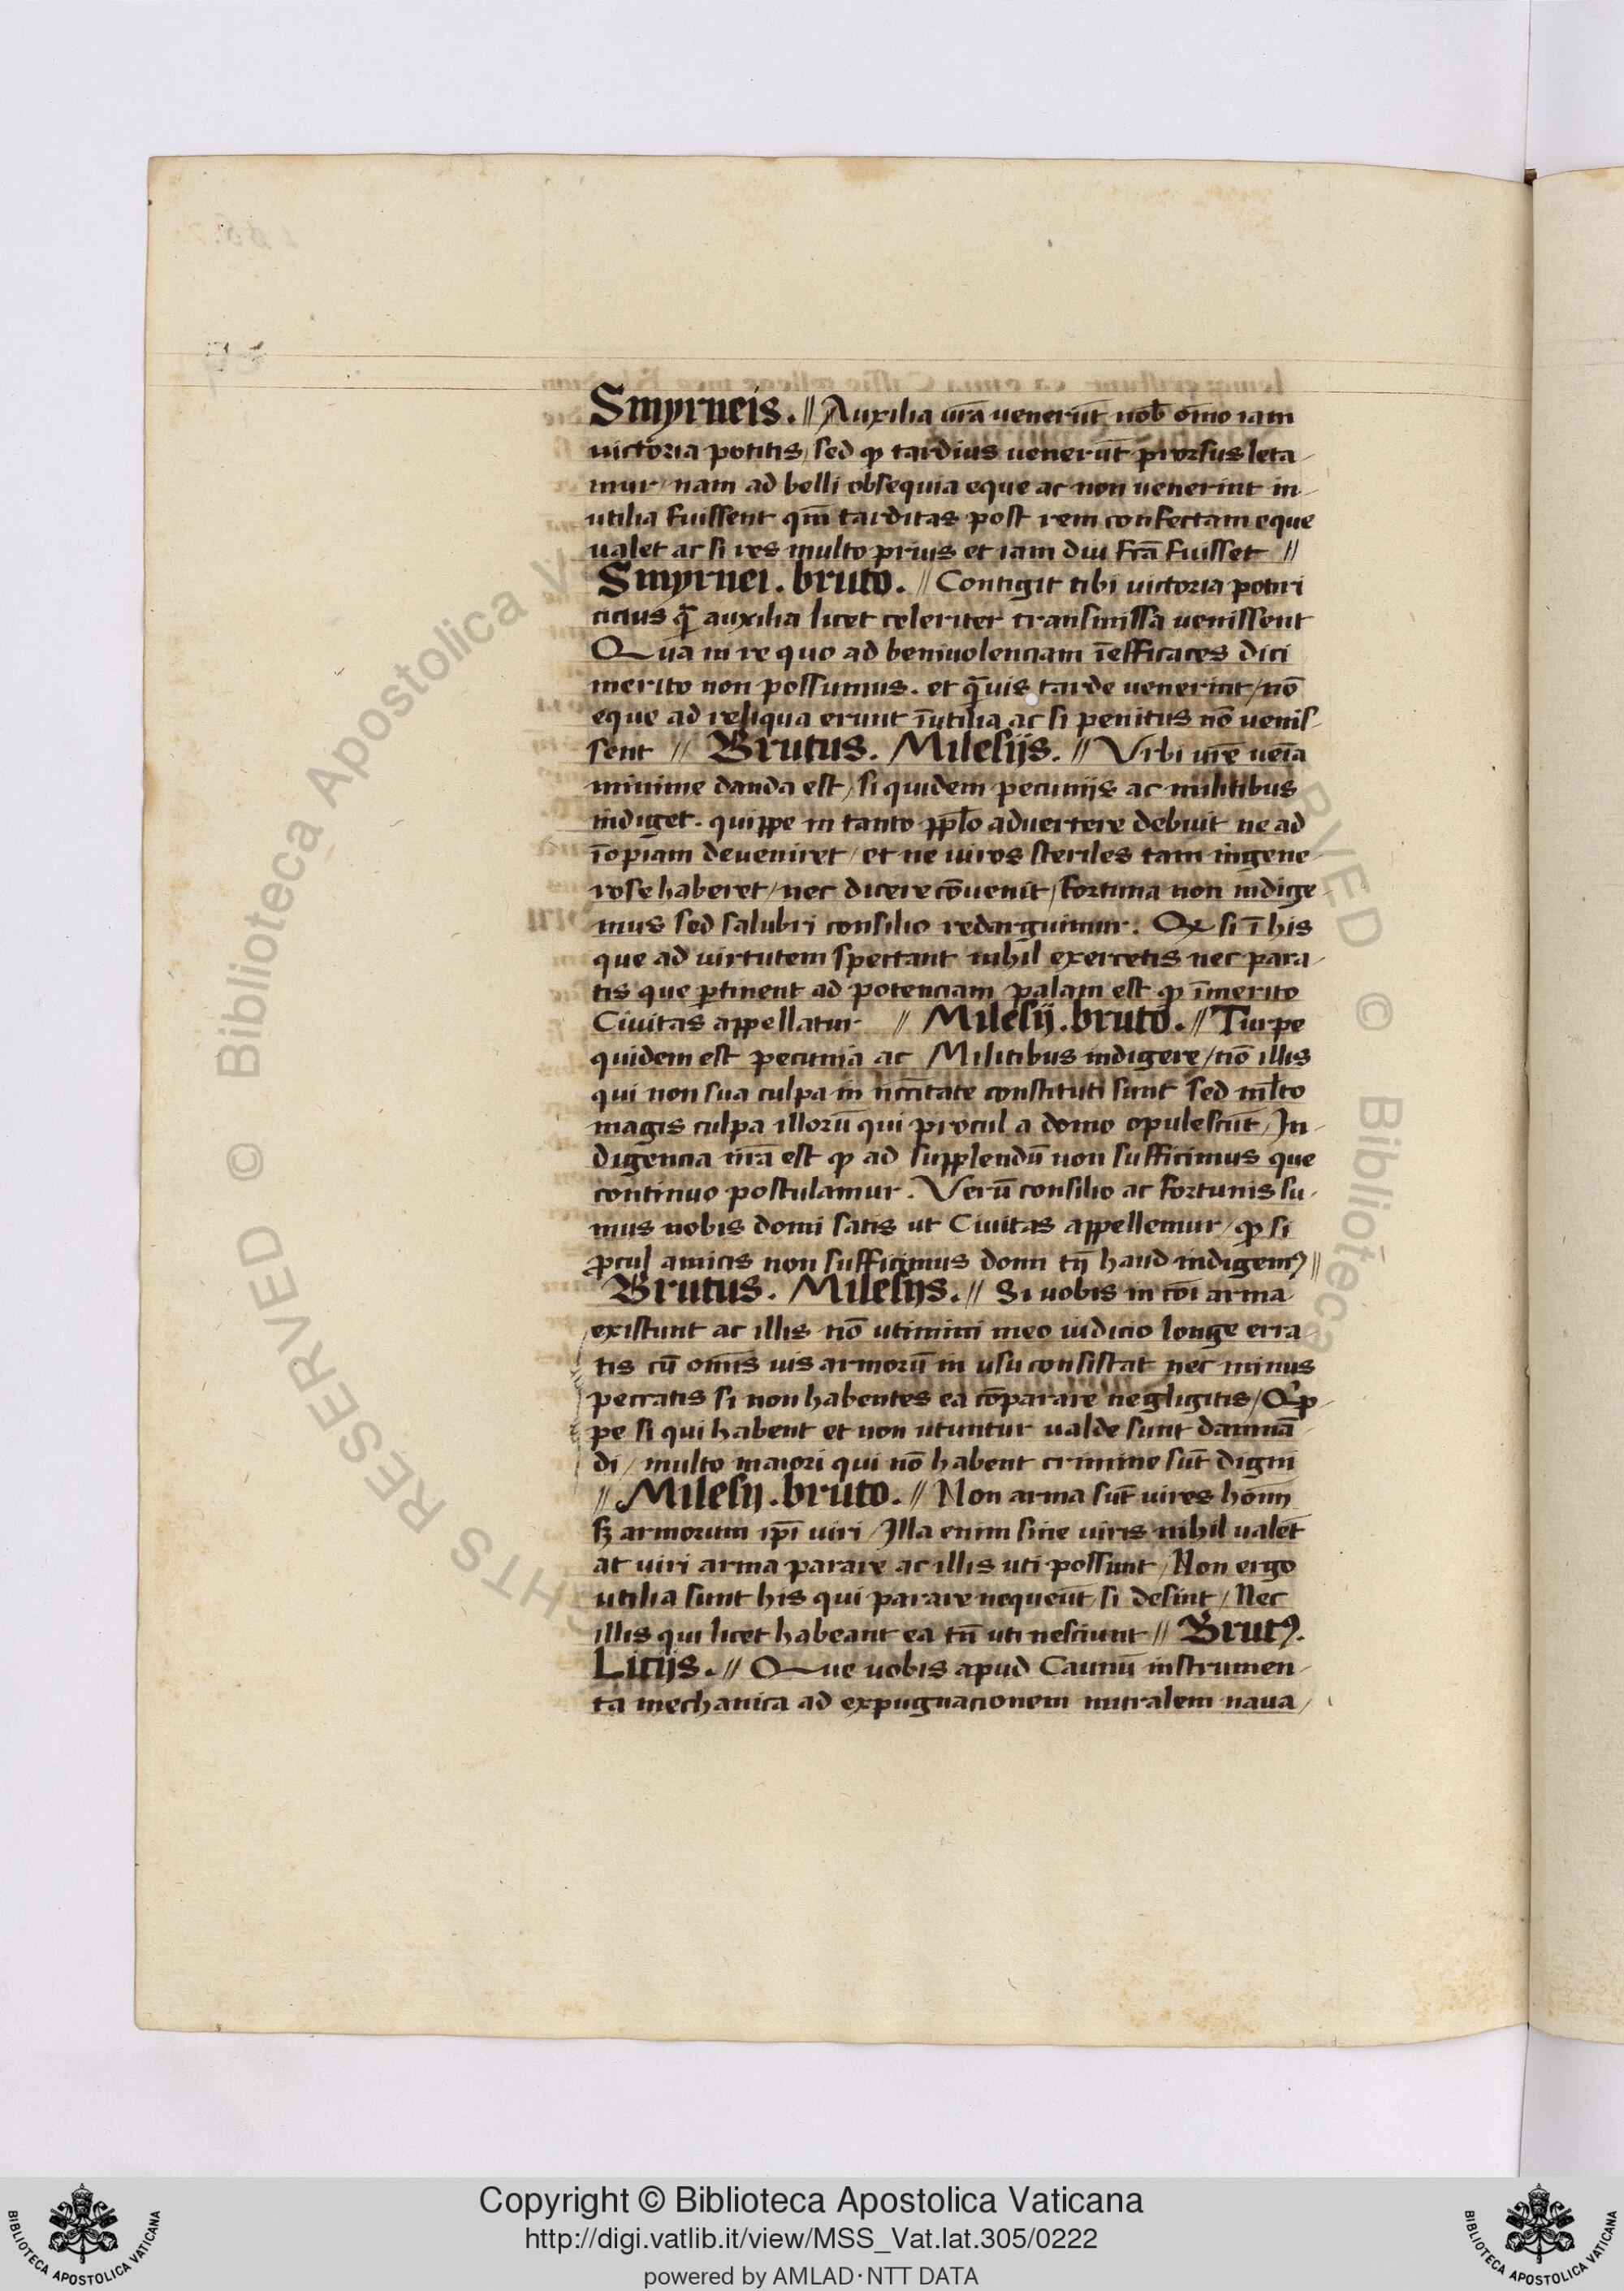 Smyrneis. // Auxilia vr̄a venerūt nob̄ om̄o iam
victoria potitis / sed ꝙ tardius venerūt prorsus leta-
mur / nam ad belli obsequia eque ac non venerint in-
utilia fuissent qm̄ tarditas post rem confectam eque
valet ac si res multo prius et iam diu fr̄a fuisset //
Smyrnei. bruto. // Contigit tibi victoria potiri
citius qᷓ auxilia licet celeriter transmissa venissent
Qua in re quo ad benivolenciam īefficaces dici
merito non possumus. et qᷓvis tarde venerint / nō
eque ad reliqua erunt īutilia ac si penitus nō venis-
sent // Brutus. Milesijs. // Vrbi vr̄e ven̄ia
minime danda est / si quidem pecunijs ac militibus
indiget. quippe in tanto ꝓpl̄o advertere debuit ne ad
īopiam deveniret / et ne viros steriles tam ingene-
rose haberet / nec dicere cōvenit / fortuna non indige-
mus sed salubri consilio redarguimur. Qꝫ si ī his
que ad virtutem spectant nihil exercetis nec para-
tis que ꝑtinent ad potenciam palam est ꝙ īmerito
Civitas appellatur // Milesij. bruto. // Turpe
quidem est pecunia ac Militibus indigere / nō illis
qui non sua culpa in nccītate constituti sunt sed ml̄to
magis culpa illorū qui procul a domo opulescūt / In-
digencia nr̄a est ꝙ ad supplendū non sufficimus que
continuo postulamur. Verū consilio ac fortunis su-
mus nobis domi satis ut Civitas appellemur / ꝙ si
ꝓcul amicis non sufficimus domi tn̄ haud indigemꝰ //
Brutus. Milesijs. // Si vobis in cōi arma
existunt ac illis nō utimini meo iudicio longe erra-
tis cū om̄is vis armorū in usu consistat nec minus
peccatis si non habentes ea cōparare negligitis / Qͥp-
pe si qui habent et non utuntur valde sunt damnā-
di / multo maiori qui nō habent crimine sūt digni
// Milesij. bruto. // Non arma sūt vires hōnn̄
sꝫ armorum ip̄i viri / Illa enim sine viris nihil valēt
at viri arma parare ac illis uti possunt / Non ergo
utilia sunt his qui parare nequeūt si desint / Nec
illis qui licet habeant ea tn̄ uti nesciunt // Brutꝰ.
Licijs. // Que vobis apud Caunū instrumen-
ta mechanica ad expugnacionem muralem nava-
Copyright © Biblioteca Apostolica Vaticana
http://digi.vatlib.it/view/MSS_Vat.lat.305/0222
powered by AMLAD·NTT DATA